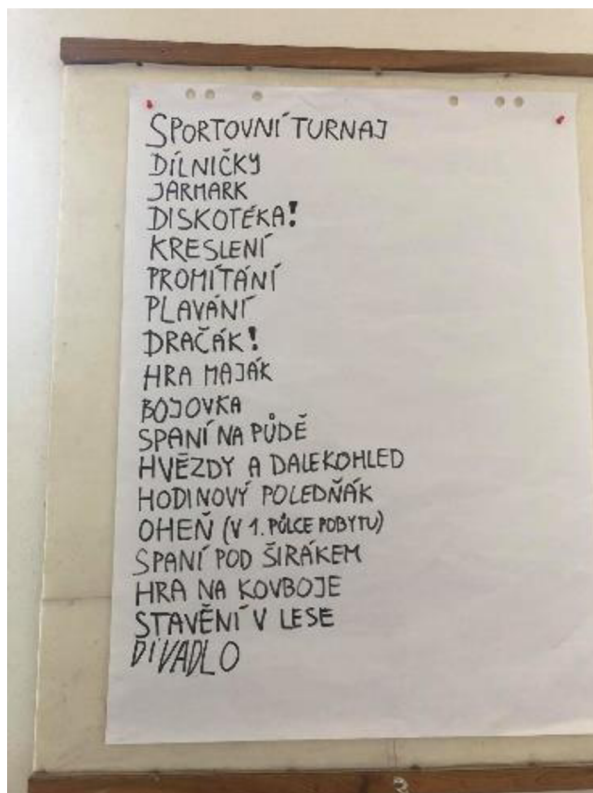 SPORTOVNÍ TURNAJ
DÍLNIČKY
JARMARK
DISKOTÉKA!
KRESLENÍ
PROMÍTÁNÍ
PLAVÁNÍ
DRAČÁK!
HRA MAJÁK
BOJOVKA
SPANÍ NA PŮDĚ
HVĚZDY A DALEKOHLED
HODINOVÝ POLEDŇÁK
OHEŇ (V 1. PŮLCE POBYTU)
SPANÍ POD ŠIRÁKEM
HRA NA KOVBOJE
STAVĚNÍ V LESE
DIVADLO
3